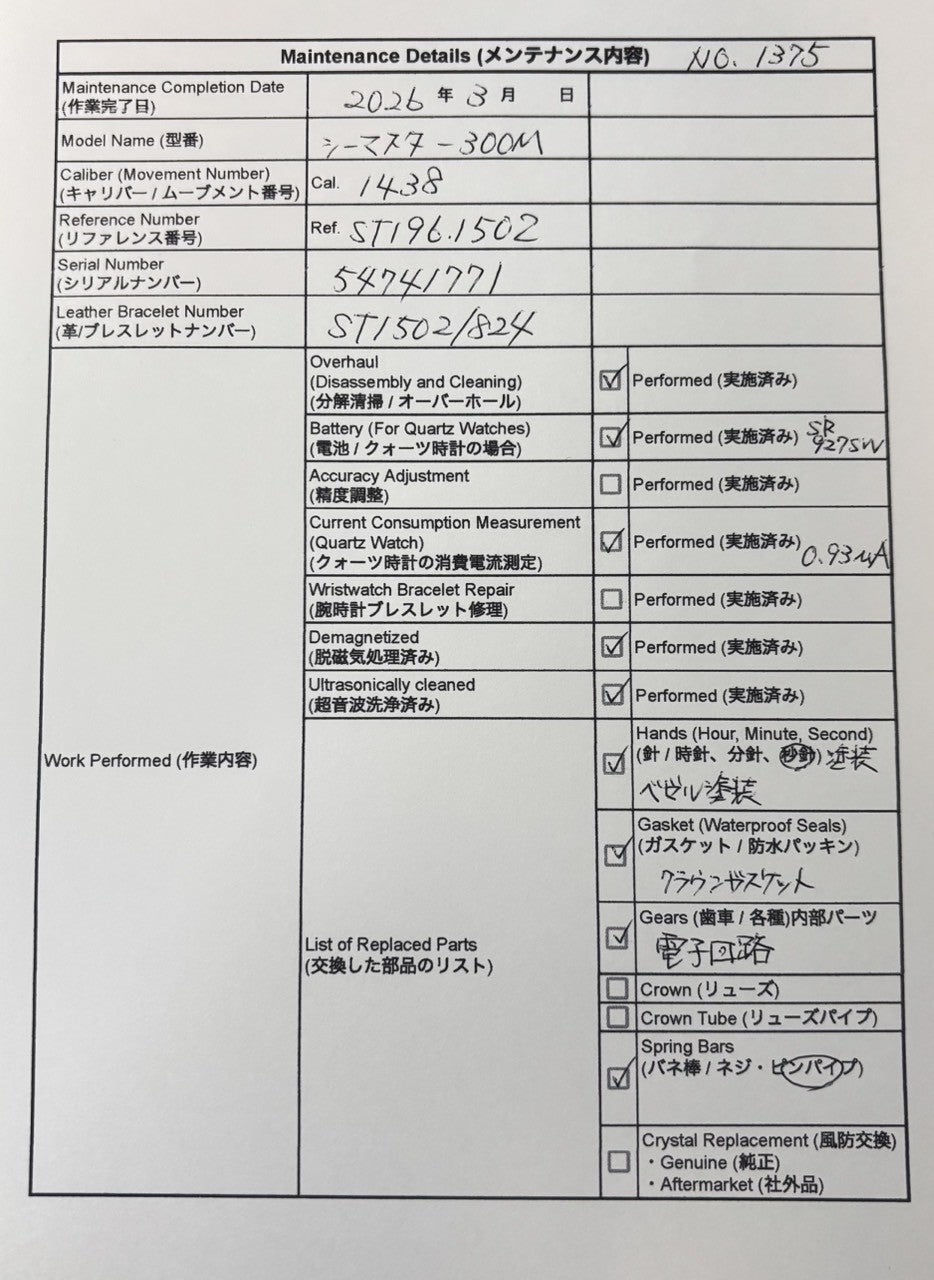 Maintenance Details (メンテナンス内容) NO. 1375
Maintenance Completion Date
(作業完了日)
2026 年 3 月 日
Model Name (型番)
シーマスター300M
Caliber (Movement Number)
(キャリバー / ムーブメント番号)
Cal. 1438
Reference Number
(リファレンス番号)
Ref. ST196.1502
Serial Number
(シリアルナンバー)
54741771
Leather Bracelet Number
(革/ブレスレットナンバー)
ST1502/824
Work Performed (作業内容)
Overhaul
(Disassembly and Cleaning)
(分解清掃 / オーバーホール)
Performed (実施済み)
Battery (For Quartz Watches)
(電池 / クォーツ時計の場合)
Performed (実施済み) SR
927SW
Accuracy Adjustment
(精度調整)
Performed (実施済み)
Current Consumption Measurement
(Quartz Watch)
(クォーツ時計の消費電流測定)
Performed (実施済み) 0.93μA
Wristwatch Bracelet Repair
(腕時計ブレスレット修理)
Performed (実施済み)
Demagnetized
(脱磁気処理済み)
Performed (実施済み)
Ultrasonically cleaned
(超音波洗浄済み)
Performed (実施済み)
List of Replaced Parts
(交換した部品のリスト)
Hands (Hour, Minute, Second)
(針 / 時針、分針、秒針) 塗装
ベゼル塗装
Gasket (Waterproof Seals)
(ガスケット / 防水パッキン)
クラウンガスケット
Gears (歯車 / 各種)内部パーツ
電子回路
Crown (リューズ)
Crown Tube (リューズパイプ)
Spring Bars
(バネ棒 / ネジ・ピンパイプ)
Crystal Replacement (風防交換)
・Genuine (純正)
・Aftermarket (社外品)